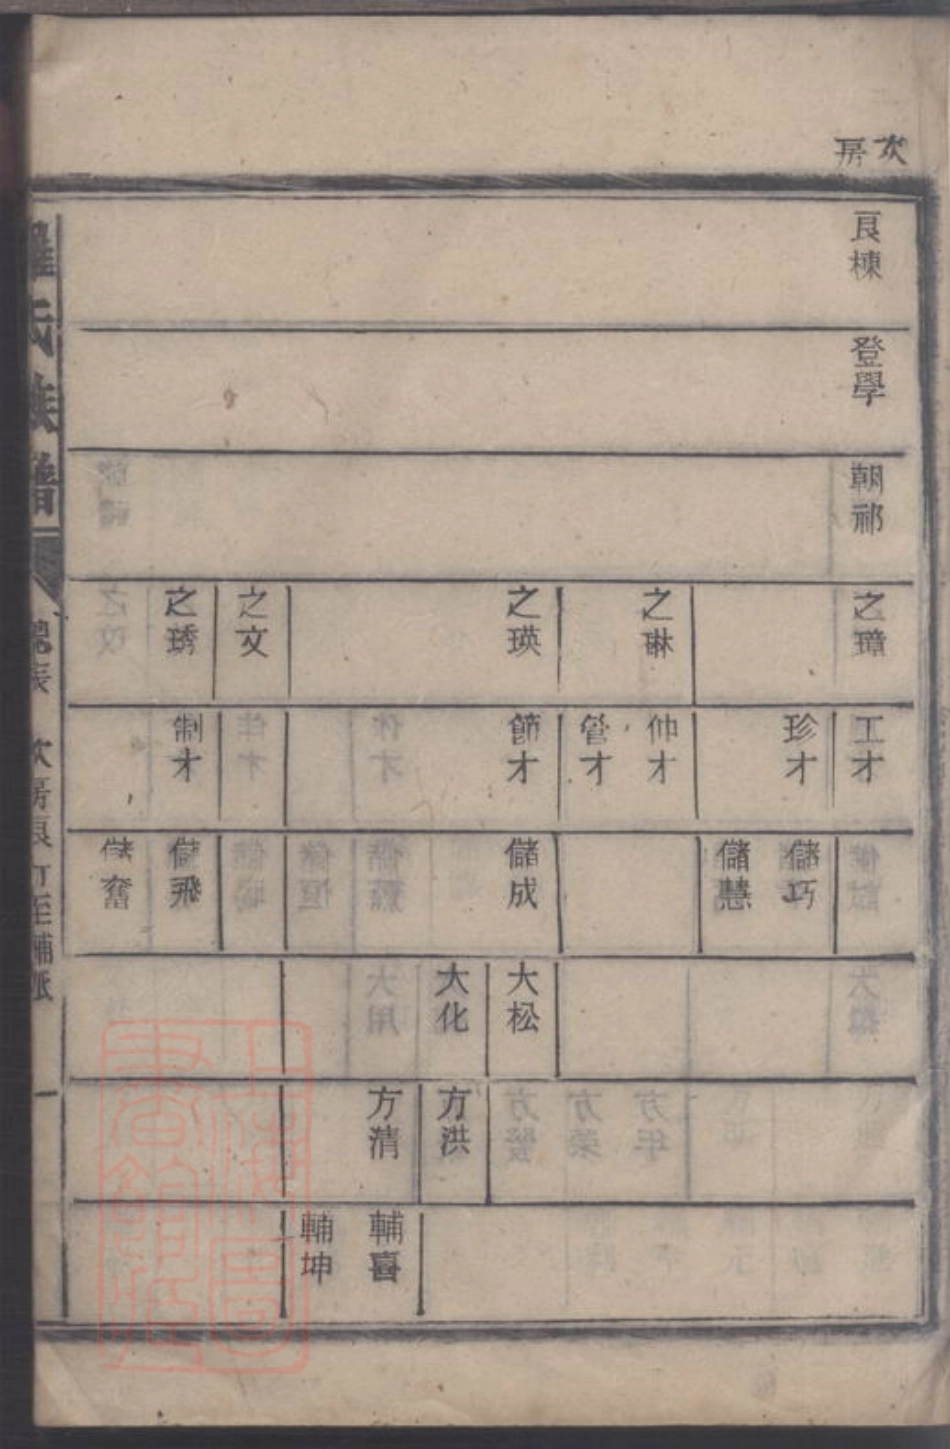 次房
良棟
登學
朝祁
之璋
之琳
之瑛
之文
之琇
工才
珍才
仲才
管才
節才
制才
儲巧
儲慧
儲成
儲飛
儲奮
大松
大化
方洪
方清
輔喜
輔坤
氏族譜
總表
次房良
至輔派
一